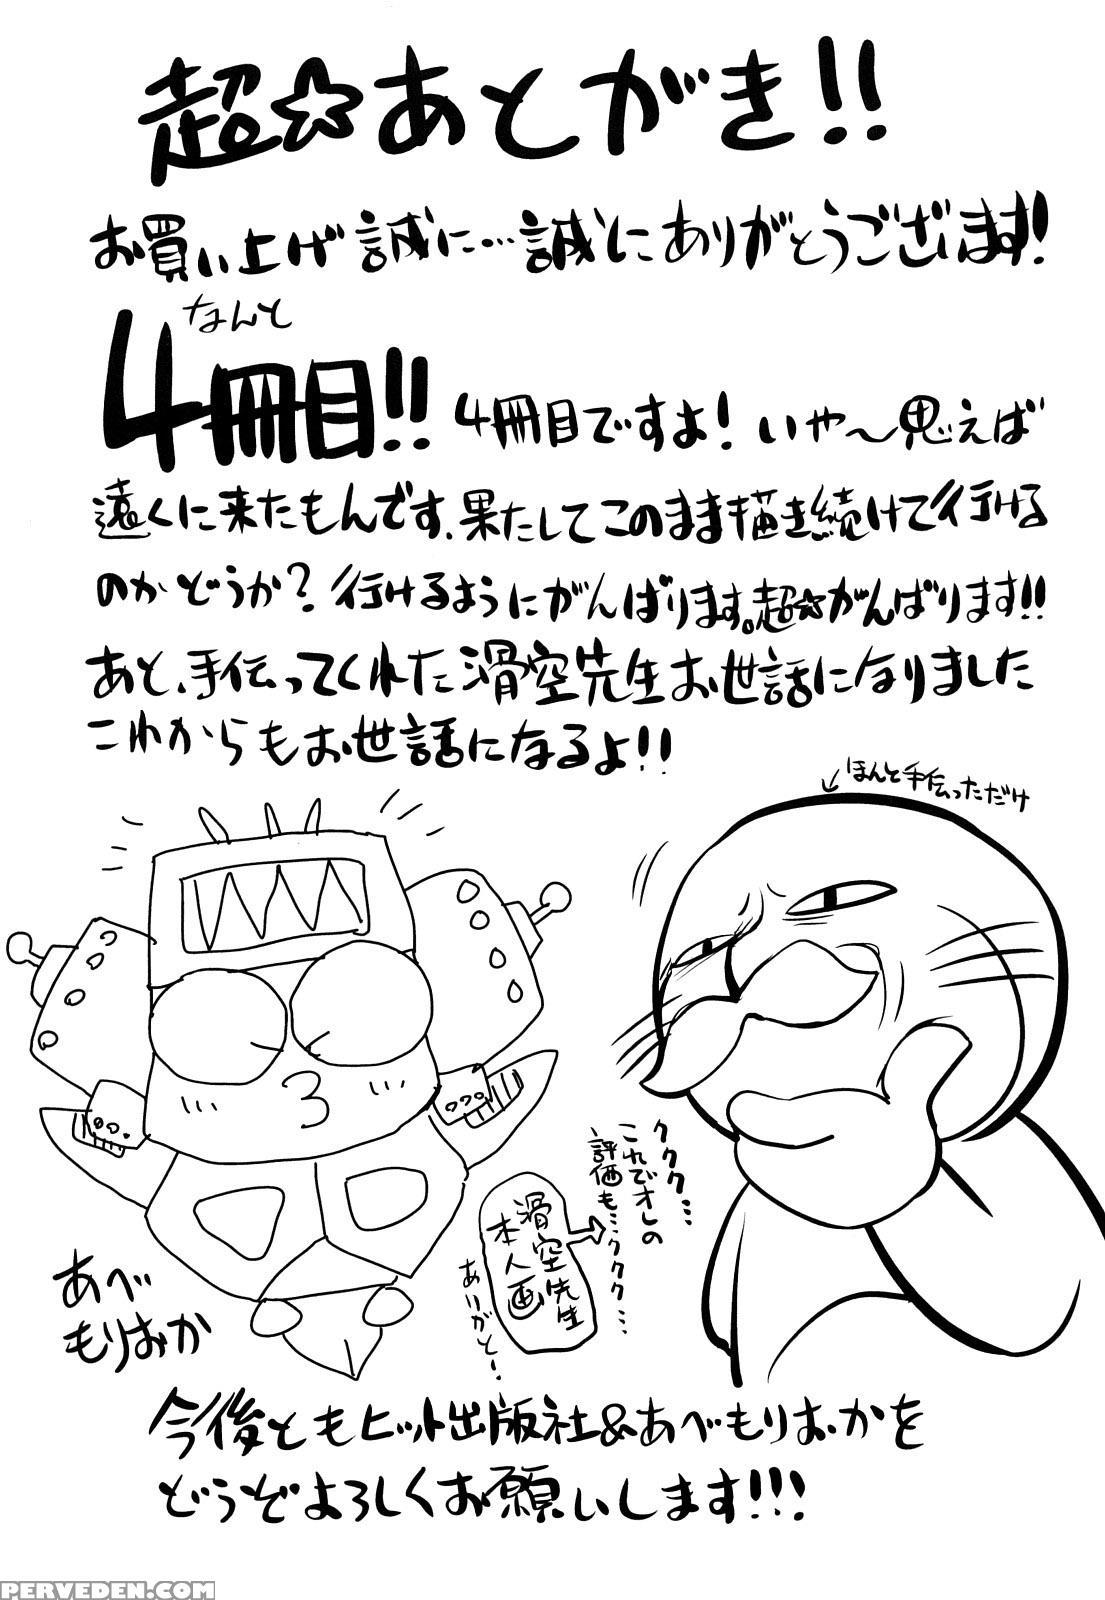 超☆あとがき!!
お買い上げ誠に…誠にありがとうございます!
なんと
4冊目!! 4冊目ですよ! いや〜思えば
遠くに来たもんです、果たしてこのまま描き続けて行ける
のかどうか? 行けるようにがんばります。超☆がんばります!!
あと、手伝ってくれた滑空先生お世話になりました
これからもお世話になるよ!!
ほんと手伝っただけ
ククク…
これでオレの
評価も…ククク…
滑空先生
本人画
ありがと!
あべ
もりおか
今後ともヒット出版社&あべもりおかを
どうぞよろしくお願いします!!!
PERVEDEN.COM